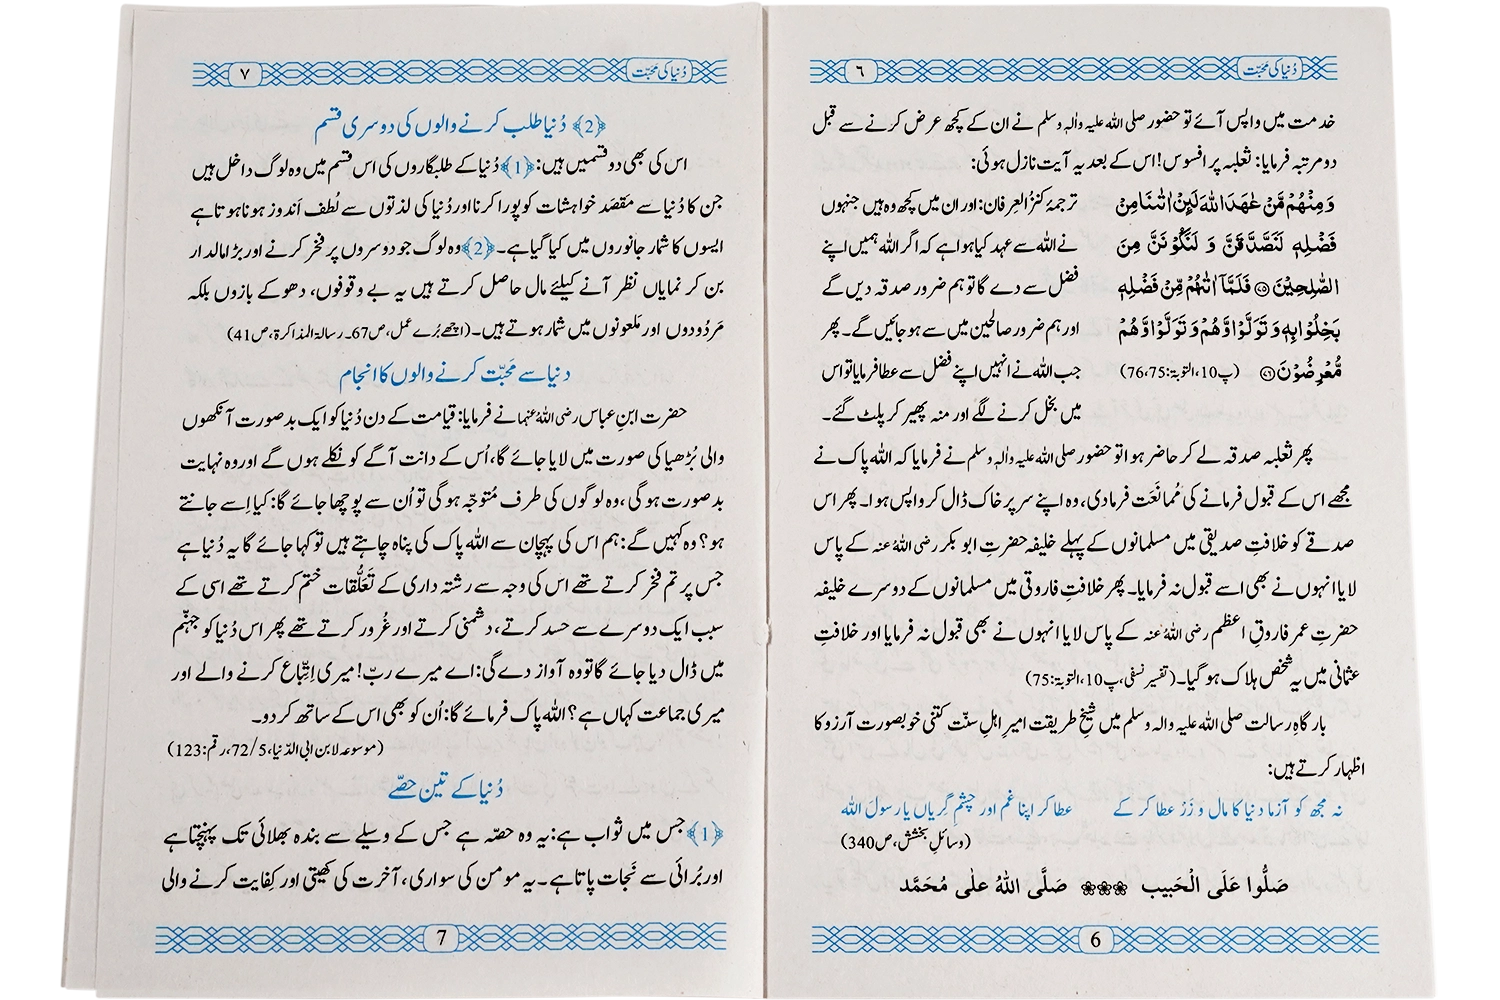 دُنیا کی محبّت
٦
خدمت میں واپس آئے تو حضور صلی اللہ علیہ والہٖ وسلم نے ان کے کچھ عرض کرنے سے قبل
دو مرتبہ فرمایا: ثعلبہ پر افسوس! اس کے بعد یہ آیت نازل ہوئی:
وَمِنْهُمْ مَّنْ عٰهَدَ اللّٰهَ لَىِٕنْ اٰتٰىنَا مِنْ
فَضْلِهٖ لَنَصَّدَّقَنَّ وَ لَنَكُوْنَنَّ مِنَ
الصّٰلِحِیْنَ ﴿۷۵﴾ فَلَمَّاۤ اٰتٰىهُمْ مِّنْ فَضْلِهٖ
بَخِلُوْا بِهٖ وَ تَوَلَّوْا وَّ هُمْ وَ تَوَلَّوْا وَّ هُمْ
مُّعْرِضُوْنَ ﴿۷۶﴾ (پ10، التوبۃ:75، 76)
ترجمۂ کنزُ العِرفان: اور ان میں کچھ وہ ہیں جنہوں
نے اللہ سے عہد کیا ہوا ہے کہ اگر اللہ ہمیں اپنے
فضل سے دے گا تو ہم ضرور صدقہ دیں گے
اور ہم ضرور صالحین میں سے ہو جائیں گے۔ پھر
جب اللہ نے انہیں اپنے فضل سے عطا فرمایا تو اس
میں بخل کرنے لگے اور منہ پھیر کر پلٹ گئے۔
پھر ثعلبہ صدقہ لے کر حاضر ہوا تو حضور صلی اللہ علیہ والہٖ وسلم نے فرمایا کہ اللہ پاک نے
مجھے اس کے قبول فرمانے کی مُمانَعَت فرما دی، وہ اپنے سر پر خاک ڈال کر واپس ہوا۔ پھر اس
صدقے کو خلافتِ صدیقی میں مسلمانوں کے پہلے خلیفہ حضرتِ ابو بکر رضی اللہُ عنہ کے پاس
لایا انہوں نے بھی اسے قبول نہ فرمایا۔ پھر خلافتِ فاروقی میں مسلمانوں کے دوسرے خلیفہ
حضرتِ عمر فاروقِ اعظم رضی اللہُ عنہ کے پاس لایا انہوں نے بھی قبول نہ فرمایا اور خلافتِ
عثمانی میں یہ شخص ہلاک ہو گیا۔ (تفسیر نسفی، پ10، التوبۃ:75)
بارگاہِ رسالت صلی اللہ علیہ والہٖ وسلم میں شیخِ طریقت امیرِ اہلِ سنّت کتنی خوبصورت آرزو کا
اظہار کرتے ہیں:
نہ مجھ کو آزما دنیا کا مال و زَر عطا کر کے عطا کر اپنا غم اور چشمِ گِریاں یا رسولَ اللہ
(وسائلِ بخشش، ص340)
صَلُّوا عَلَی الْحَبِیب ❀❀❀ صَلَّی اللّٰهُ علٰی مُحَمَّد
6
دُنیا کی محبّت
٧
﴿2﴾ دُنیا طلب کرنے والوں کی دوسری قسم
اس کی بھی دو قسمیں ہیں: ﴿1﴾ دُنیا کے طلبگاروں کی اس قسم میں وہ لوگ داخل ہیں
جن کا دُنیا سے مقصَد خواہشات کو پورا کرنا اور دُنیا کی لذتوں سے لُطف اَندوز ہونا ہوتا ہے
ایسوں کا شمار جانوروں میں کیا گیا ہے۔ ﴿2﴾ وہ لوگ جو دوسروں پر فخر کرنے اور بڑا مالدار
بن کر نمایاں نظر آنے کیلئے مال حاصل کرتے ہیں یہ بے وقوفوں، دھوکے بازوں بلکہ
مَردُودوں اور مَلعونوں میں شمار ہوتے ہیں۔ (اچھے بُرے عمل، ص67۔ رسالۃ المذاکرۃ، ص41)
دنیا سے مَحبّت کرنے والوں کا انجام
حضرت ابنِ عباس رضی اللہُ عنہما نے فرمایا: قیامت کے دن دُنیا کو ایک بدصورت آنکھوں
والی بُڑھیا کی صورت میں لایا جائے گا، اُس کے دانت آگے کو نکلے ہوں گے اور وہ نہایت
بدصورت ہو گی، وہ لوگوں کی طرف مُتوجّہ ہو گی تو اُن سے پوچھا جائے گا: کیا اِسے جانتے
ہو؟ وہ کہیں گے: ہم اس کی پہچان سے اللہ پاک کی پناہ چاہتے ہیں تو کہا جائے گا یہ دُنیا ہے
جس پر تم فخر کرتے تھے اس کی وجہ سے رشتہ داری کے تَعَلُّقات ختم کرتے تھے اسی کے
سبب ایک دوسرے سے حسد کرتے، دشمنی کرتے اور غُرور کرتے تھے پھر اس دُنیا کو جہنّم
میں ڈال دیا جائے گا تو وہ آواز دے گی: اے میرے ربّ! میری اِتِّباع کرنے والے اور
میری جماعت کہاں ہے؟ اللہ پاک فرمائے گا: اُن کو بھی اس کے ساتھ کر دو۔
(موسوعہ لابن ابی الدّنیا، 5/72، رقم: 123)
دُنیا کے تین حصّے
﴿1﴾ جس میں ثواب ہے: یہ وہ حصّہ ہے جس کے وسیلے سے بندہ بھلائی تک پہنچتا ہے
اور بُرائی سے نَجات پاتا ہے۔ یہ مومن کی سواری، آخرت کی کھیتی اور کِفایت کرنے والی
7